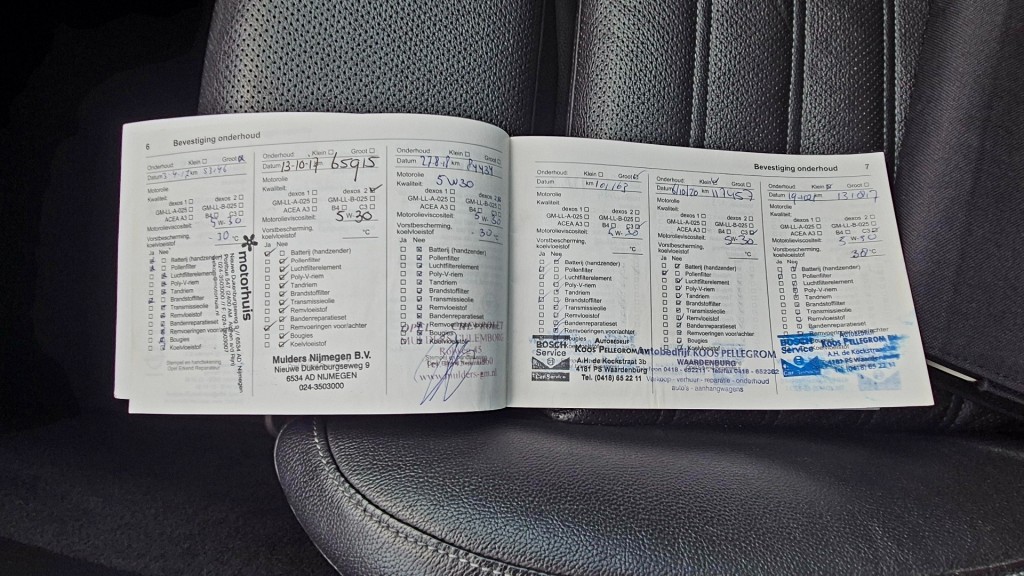 6 Bevestiging onderhoud
Onderhoud: Klein Groot
Datum km
Motorolie
Kwaliteit:
dexos 1 dexos 2
GM-LL-A-025 GM-LL-B-025
ACEA A3 B4 C3
Motorolieviscositeit:
5w30
Vorstbescherming, koelvloeistof
-30 °C
Ja Nee
Batterij (handzender)
Pollenfilter
Luchtfilterelement
Poly-V-riem
Tandriem
Brandstoffilter
Transmissieolie
Remvloeistof
Bandenreparatieset
Remvoeringen voor/achter
Bougies
Koelvloeistof
motorhuis
Onderhoud: Klein Groot
Datum 13-10-17 km 65915
Motorolie
Kwaliteit:
dexos 1 dexos 2
GM-LL-A-025 GM-LL-B-025
ACEA A3 B4 C3
Motorolieviscositeit: 5w.30
Vorstbescherming, koelvloeistof
°C
Ja Nee
Batterij (handzender)
Pollenfilter
Luchtfilterelement
Poly-V-riem
Tandriem
Brandstoffilter
Transmissieolie
Remvloeistof
Bandenreparatieset
Remvoeringen voor/achter
Bougies
Koelvloeistof
Mulders Nijmegen B.V.
Nieuwe Dukenburgseweg 9
6534 AD NIJMEGEN
024-3503000
Onderhoud: Klein Groot
Datum km 84434
Motorolie
Kwaliteit: 5W30
dexos 1 dexos 2
GM-LL-A-025 GM-LL-B-025
ACEA A3 B4 C3
Motorolieviscositeit:
Vorstbescherming, koelvloeistof
-30 °C
Ja Nee
Batterij (handzender)
Pollenfilter
Luchtfilterelement
Poly-V-riem
Tandriem
Brandstoffilter
Transmissieolie
Remvloeistof
Bandenreparatieset
Remvoeringen voor/achter
Bougies
Koelvloeistof
Bevestiging onderhoud 7
Onderhoud: Klein Groot
Datum km 101.168
Motorolie
Kwaliteit:
dexos 1 dexos 2
GM-LL-A-025 GM-LL-B-025
ACEA A3 B4 C3
Motorolieviscositeit:
Vorstbescherming, koelvloeistof
°C
Ja Nee
Batterij (handzender)
Pollenfilter
Luchtfilterelement
Poly-V-riem
Tandriem
Brandstoffilter
Transmissieolie
Remvloeistof
Bandenreparatieset
Remvoeringen voor/achter
Bougies
Koelvloeistof
BOSCH Service
AUTOBEDRIJF
KOOS PELLEGROM
A.H. de Kockstraat 3b
4181 PS Waardenburg
Tel. (0418) 65 22 11
Onderhoud: Klein Groot
Datum km 117457
Motorolie
Kwaliteit:
dexos 1 dexos 2
GM-LL-A-025 GM-LL-B-025
ACEA A3 B4 C3
Motorolieviscositeit: 5W-30
Vorstbescherming, koelvloeistof
°C
Ja Nee
Batterij (handzender)
Pollenfilter
Luchtfilterelement
Poly-V-riem
Tandriem
Brandstoffilter
Transmissieolie
Remvloeistof
Bandenreparatieset
Remvoeringen voor/achter
Bougies
Koelvloeistof
Autobedrijf KOOS PELLEGROM
WAARDENBURG
Verkoop - verhuur - reparatie - onderhoud
auto's - aanhangwagens
Onderhoud: Klein Groot
Datum km
Motorolie
Kwaliteit:
dexos 1 dexos 2
GM-LL-A-025 GM-LL-B-025
ACEA A3 B4 C3
Motorolieviscositeit:
Vorstbescherming, koelvloeistof
30 °C
Ja Nee
Batterij (handzender)
Pollenfilter
Luchtfilterelement
Poly-V-riem
Tandriem
Brandstoffilter
Transmissieolie
Remvloeistof
Bandenreparatieset
Remvoeringen voor/achter
Bougies
Koelvloeistof
BOSCH Service
KOOS PELLEGROM
A.H. de Kockstraat 3b
4181 PS Waardenburg
Tel. (0418) 65 22 11